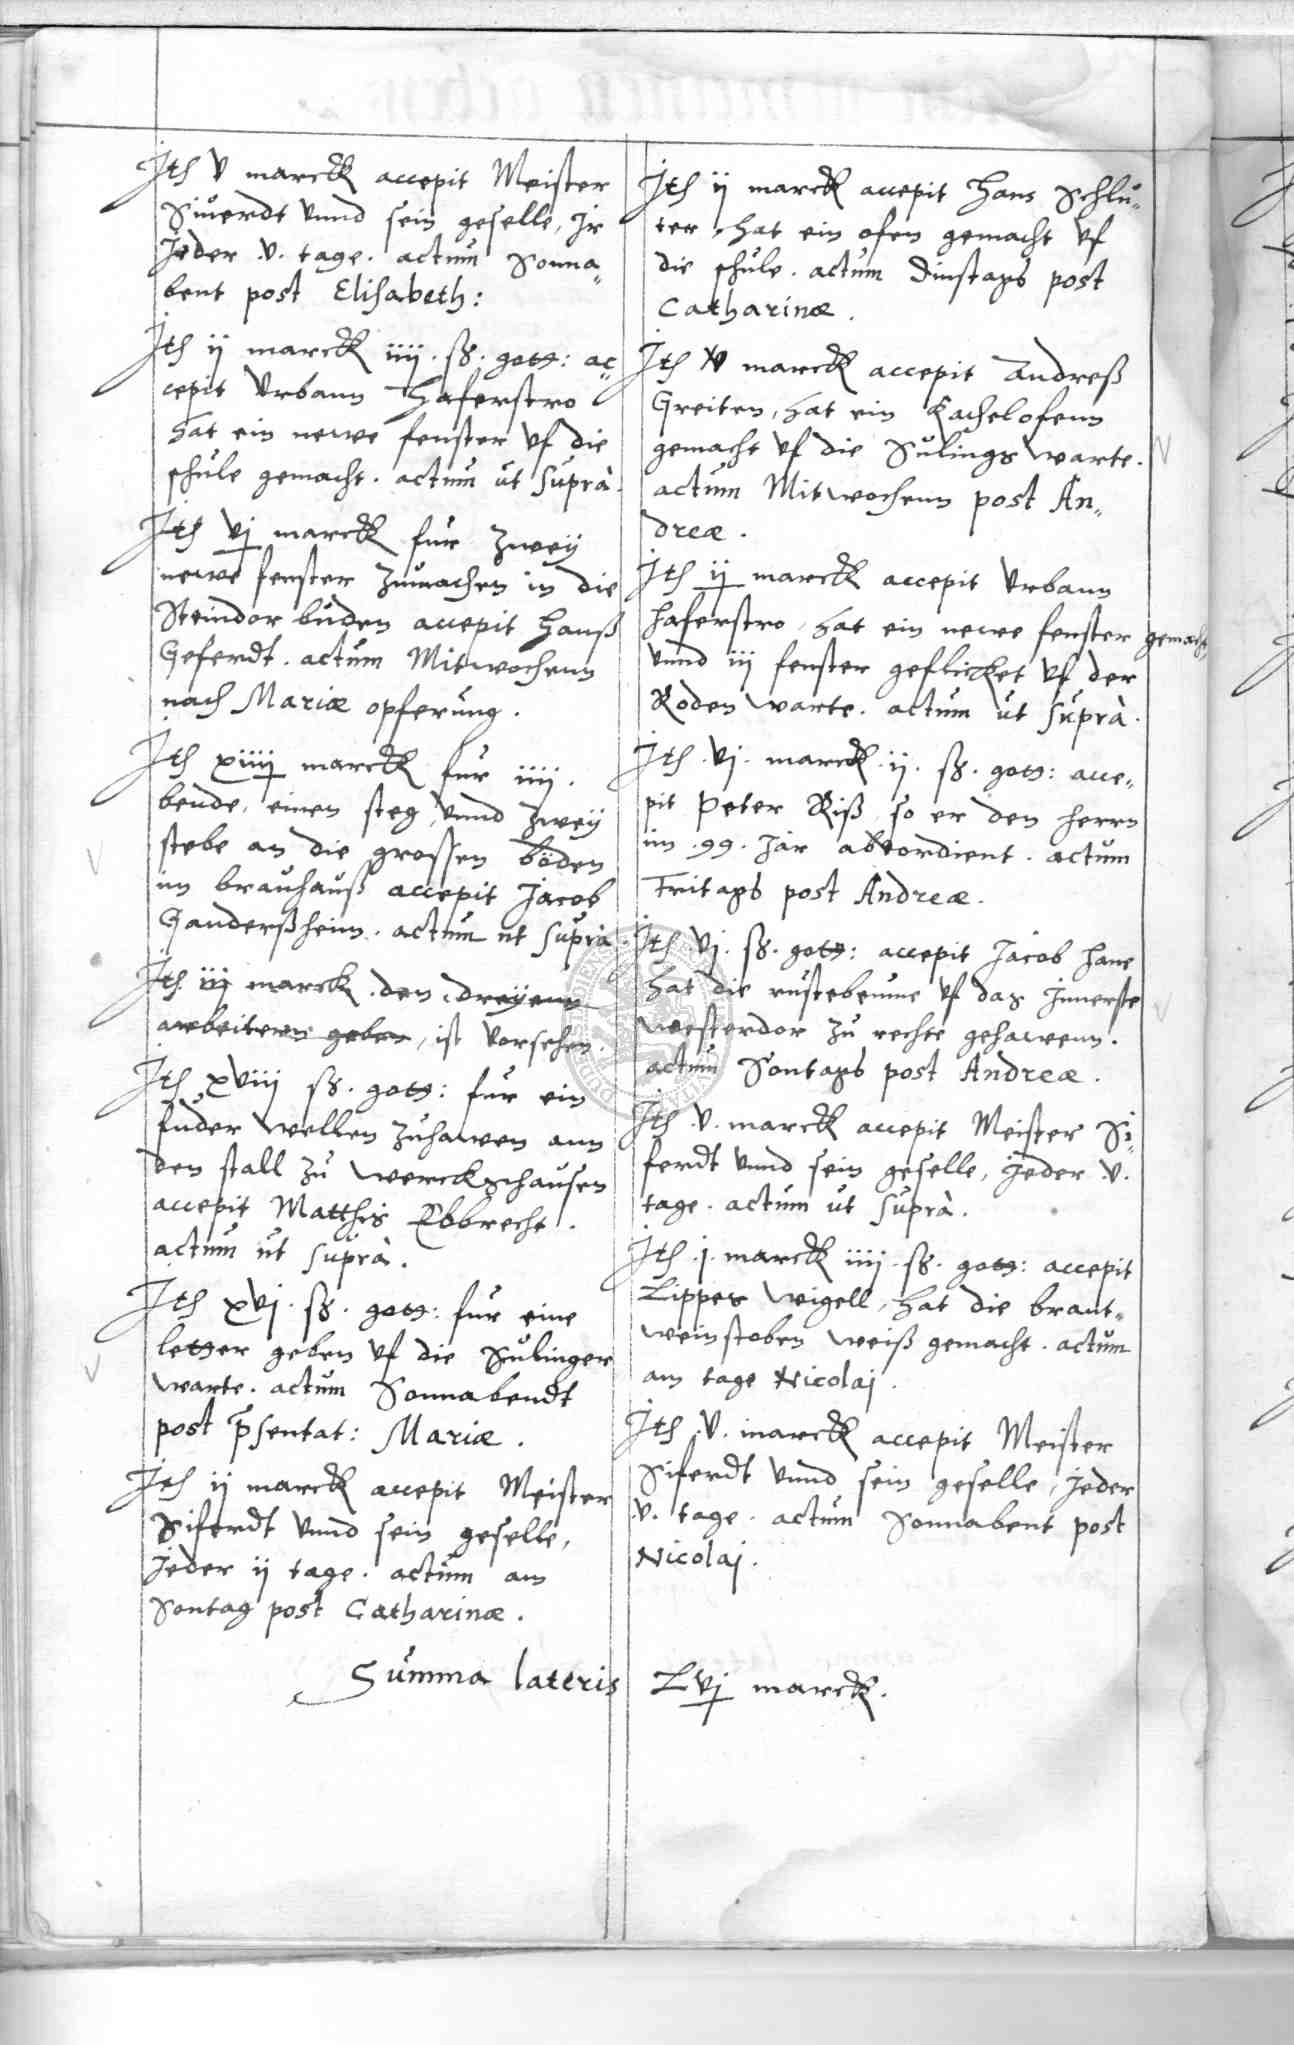 Jtḥ v marck accepit Meister
Siuerdt vnnd sein geselle, Jr
Jeder .v. tage. actum Sonna„
bent post Elisabeth:
Jtḥ ij marck iiij. ß. gott: ac„
cepit Vrbann Haferstro
hat ein newe fenster vf die
schule gemacht. actum ut suprà.
Jtḥ vj marck fur zweÿ
newe fenster zumachen in die
Steindor buden accepit Hanß
Geferdt. actum Mitwochenn
nach Mariæ opferung.
Jtḥ xiiij marck fur iiij.
bende, einen steg, vnnd zweÿ
stebe an die grossen böden
im brauhauß accepit Jacob
Ganderßheim. actum ut suprà.
Jtḥ iij marck den dreÿenn
arbeitern geben, ist vorsehen.
Jtḥ xviij ß. gott: fur ein
fuder wellen zuhawen ann
den stall zu werckshausen
accepit Matthis Ebbrecht.
actum ut suprà.
Jtḥ xvj. ß. gott: fur eine
letzer geben vf die Sulinger
warte. actum Sonnabendt
post p̄sentat: Mariæ.
Jtḥ ij marck accepit Meister
Siferdt vnnd sein geselle,
Jeder ij tage. actum am
Sontag post Catharinæ.
Jtḥ ij marck accepit Hans Schlu„
ter, hat ein ofen gemacht vf
die schule. actum Dinstags post
Catharinæ.
Jtḥ v marck accepit Andreß
Greiten, hat ein Kachelofenn
gemacht vf die Sulings warte.
actum Mitwochenn post An„
dreæ.
Jtḥ ij marck accepit Vrbann
Haferstro, hat ein newe fenster gemacht
vnnd iij fenster geflicket vf der
Roden warte. actum ut suprà.
Jtḥ .vj. marck .ij. ß. gott: acce„
pit Peter Riß so er den herrn
im .99. Jar abvordient. actum
Fritags post Andreæ.
Jtḥ vj. ß. gott: accepit Jacob Hane
hat die rustebeume vf das Jnnerste
westerdor zu rechte gehawenn.
actum Sontags post Andreæ.
Jtḥ .v. marck accepit Meister Si„
ferdt vnnd sein geselle, Jeder .v.
tage. actum ut suprà.
Jtḥ .j. marck iiij. ß. gott: accepit
Lippes Wigell, hat die brant„
weinstoben weiß gemacht. actum
am tage Nicolaj.
Jtḥ .v. marck accepit Meister
Siferdt vnnd sein geselle, Jeder
.v. tage. actum Sonnabent post
Nicolaj.
Summa lateris Lvj marck.